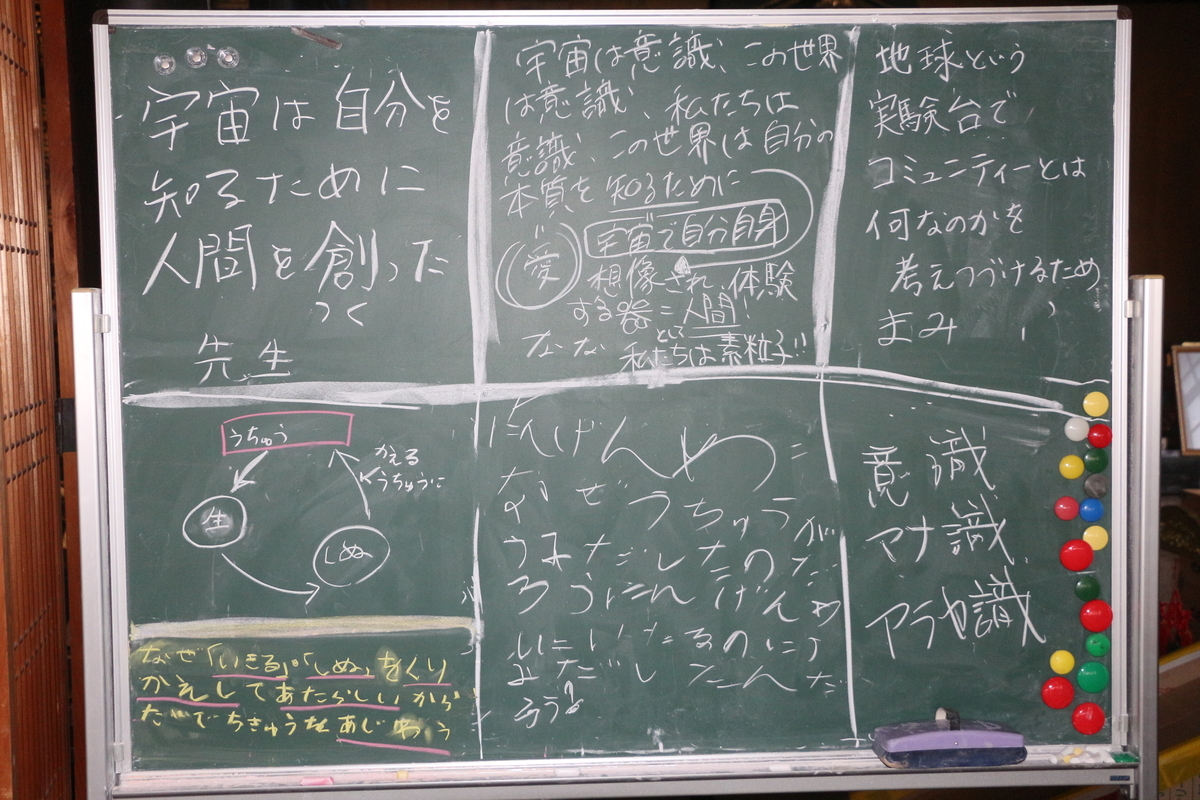 宇宙は自分を
知るために
人間を創った
つく
先生
宇宙は意識、この世界
は意識、私たちは
意識、この世界は自分の
本質を知るために
宇宙で自分自身
"愛"
想像され、体験
する器=人間!
として
なな 私たちは素粒子!!
地球という
実験台で
コミュニティーとは
何なのかを
考えつづけるため
まみ
うちゅう
生
しぬ
かえる
うちゅうに
なぜ「いきる」「しぬ」をくり
かえしてあたらしいから
だでちきゅうをあじわう
にんげんわ
なぜうちゅうが
うみだしたのだ
ろうにんげんわ
だしたんだ
ろう?
意識
マナ識
アラヤ識